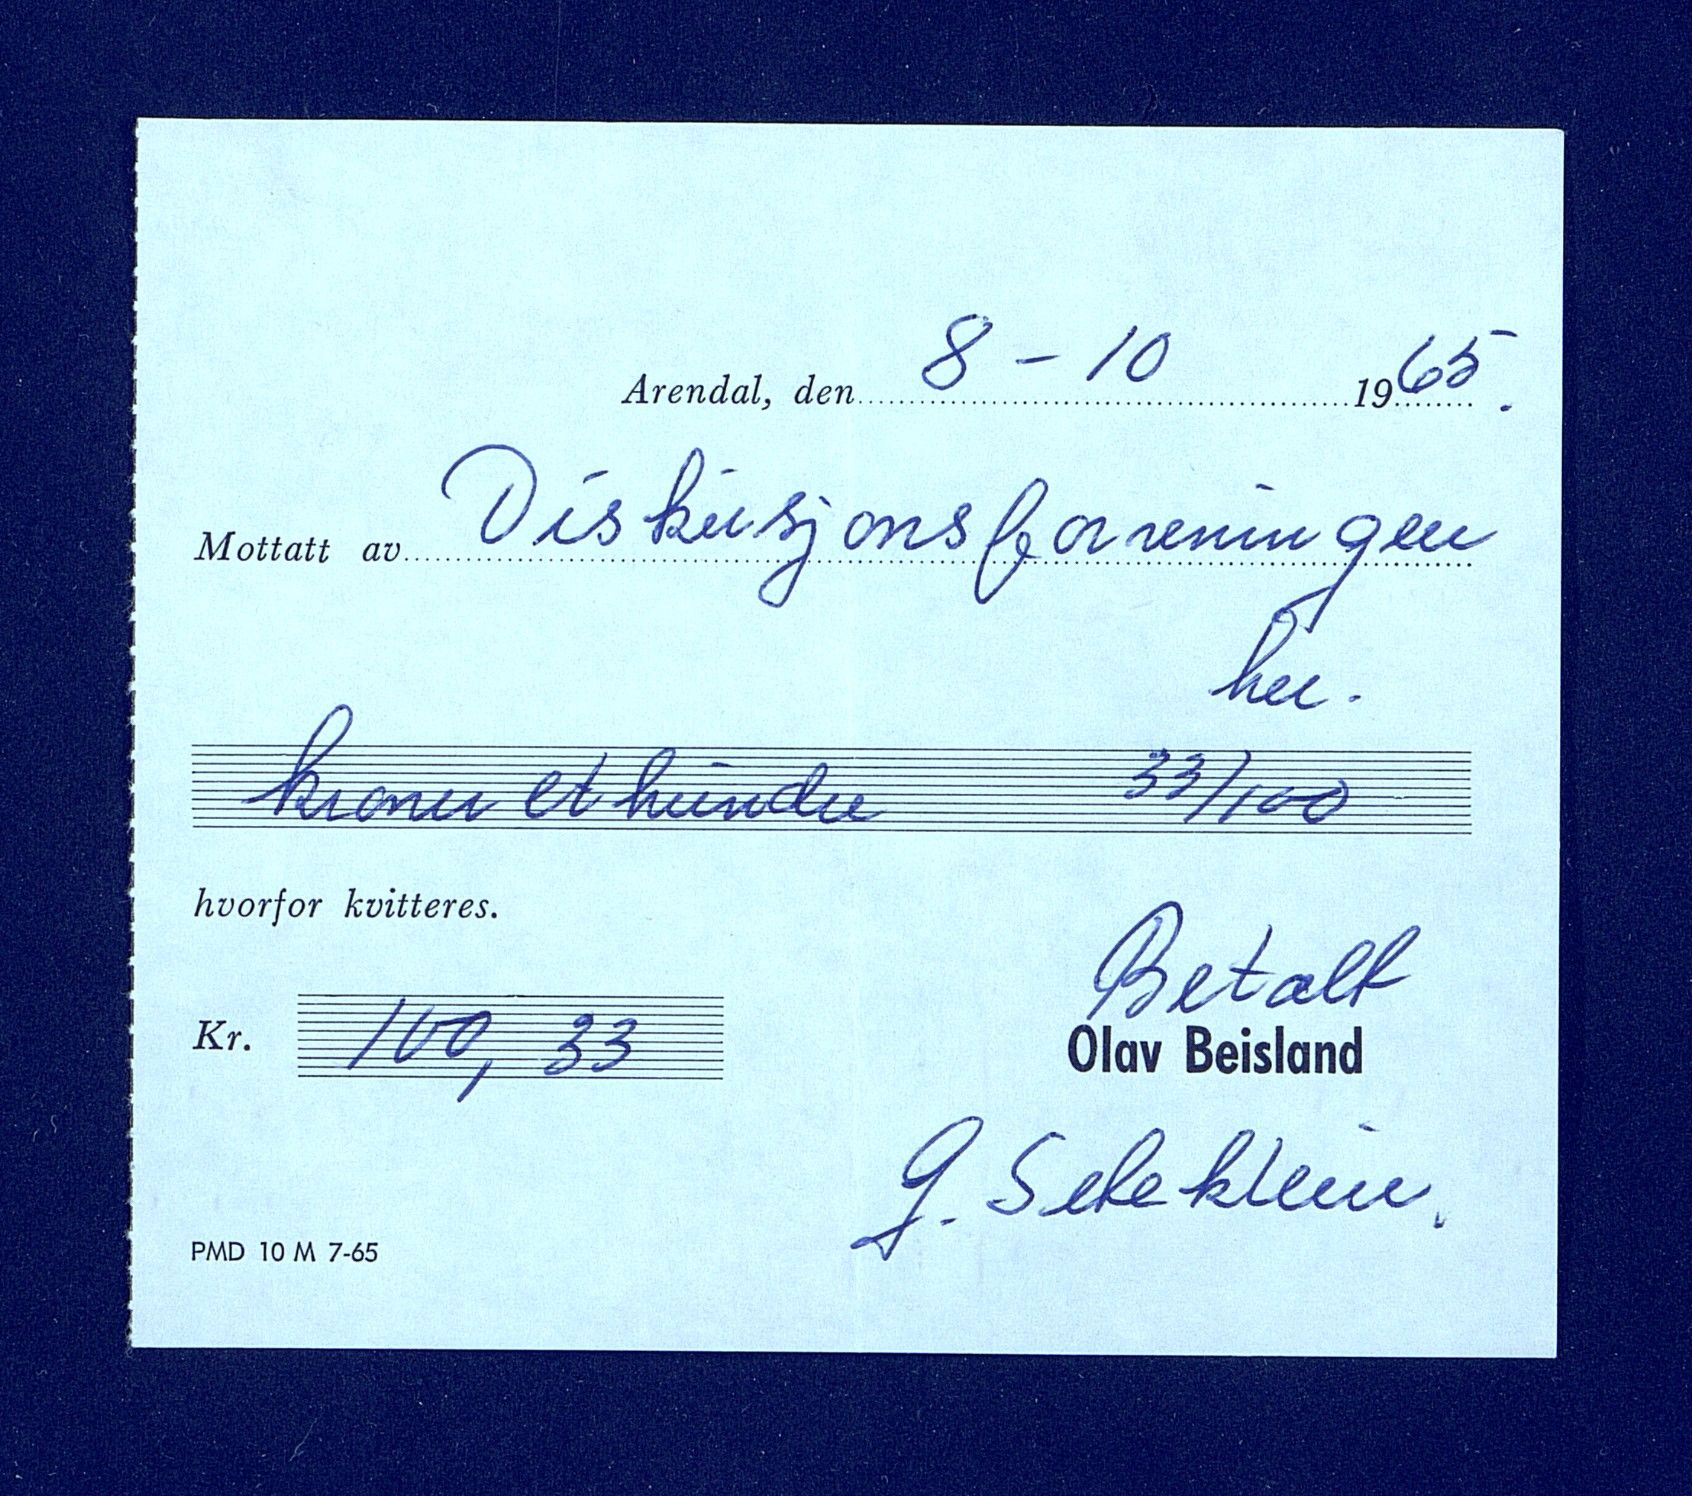 Arendal, den 8 - 10 1965.
Mottatt av Diskusjonsforeningen
her.
kroner et hundre 33/100
hvorfor kvitteres.
Kr. 100,33
Betalt
Olav Beisland
G.
PMD 10 M 7-65